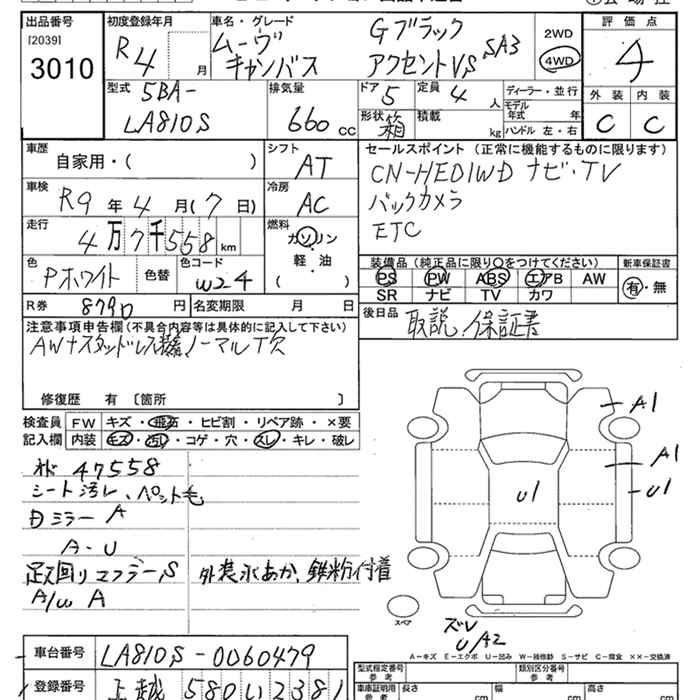 出品番号
[2039]
3010
初度登録年月
R4 月
車名・グレード
ムーヴ
キャンバス
Gブラック
アクセントVS SA3
2WD
4WD
評価点
4
外装 内装
C C
型式
5BA-
LA810S
排気量
660 cc
ドア
5
定員
4 人
形状
箱
積載
kg
ディーラー・並行
モデル
年式 年
ハンドル 左・右
車歴
自家用・( )
シフト
AT
車検
R9年4月(7日)
冷房
AC
走行
4万7千558km
燃料
ガソリン
軽・油
( )
色
Pホワイト
色替
色コード
W24
R券
8790円
名変期限 月 日
セールスポイント(正常に機能するものに限ります)
CN-HE01WD ナビ・TV
バックカメラ
ETC
装備品(純正品に限り○をつけてください)
PS PW ABS エアB AW
SR ナビ TV カワ
新車保証書
有・無
後日品
取説 保証書
注意事項申告欄(不具合内容等は具体的に記入して下さい)
AW+スタッドレス積 ノーマルT欠
修復歴 有〔箇所 〕
検査員
記入欄
FW キズ・飛石・ヒビ割・リペア跡・×要
内装 キズ・汚れ・コゲ・穴・スレ・キレ・破レ
47558
シート汚レ、ペット毛
ミラー A
A・U
足回りエフラーS
外装水あか、鉄粉付着
A/W A
A1
A1
U1
U1
スペア
ズレ
U/A2
A−キズ E−エクボ U−凹み W−補修跡 S−サビ C−腐食 ××−交換済
車台番号
LA810S-0060479
登録番号
上越 580 い 2381
型式指定番号
参考
類別区分番号
参考
車庫証明用
参考
長さ cm
幅 cm
高さ cm